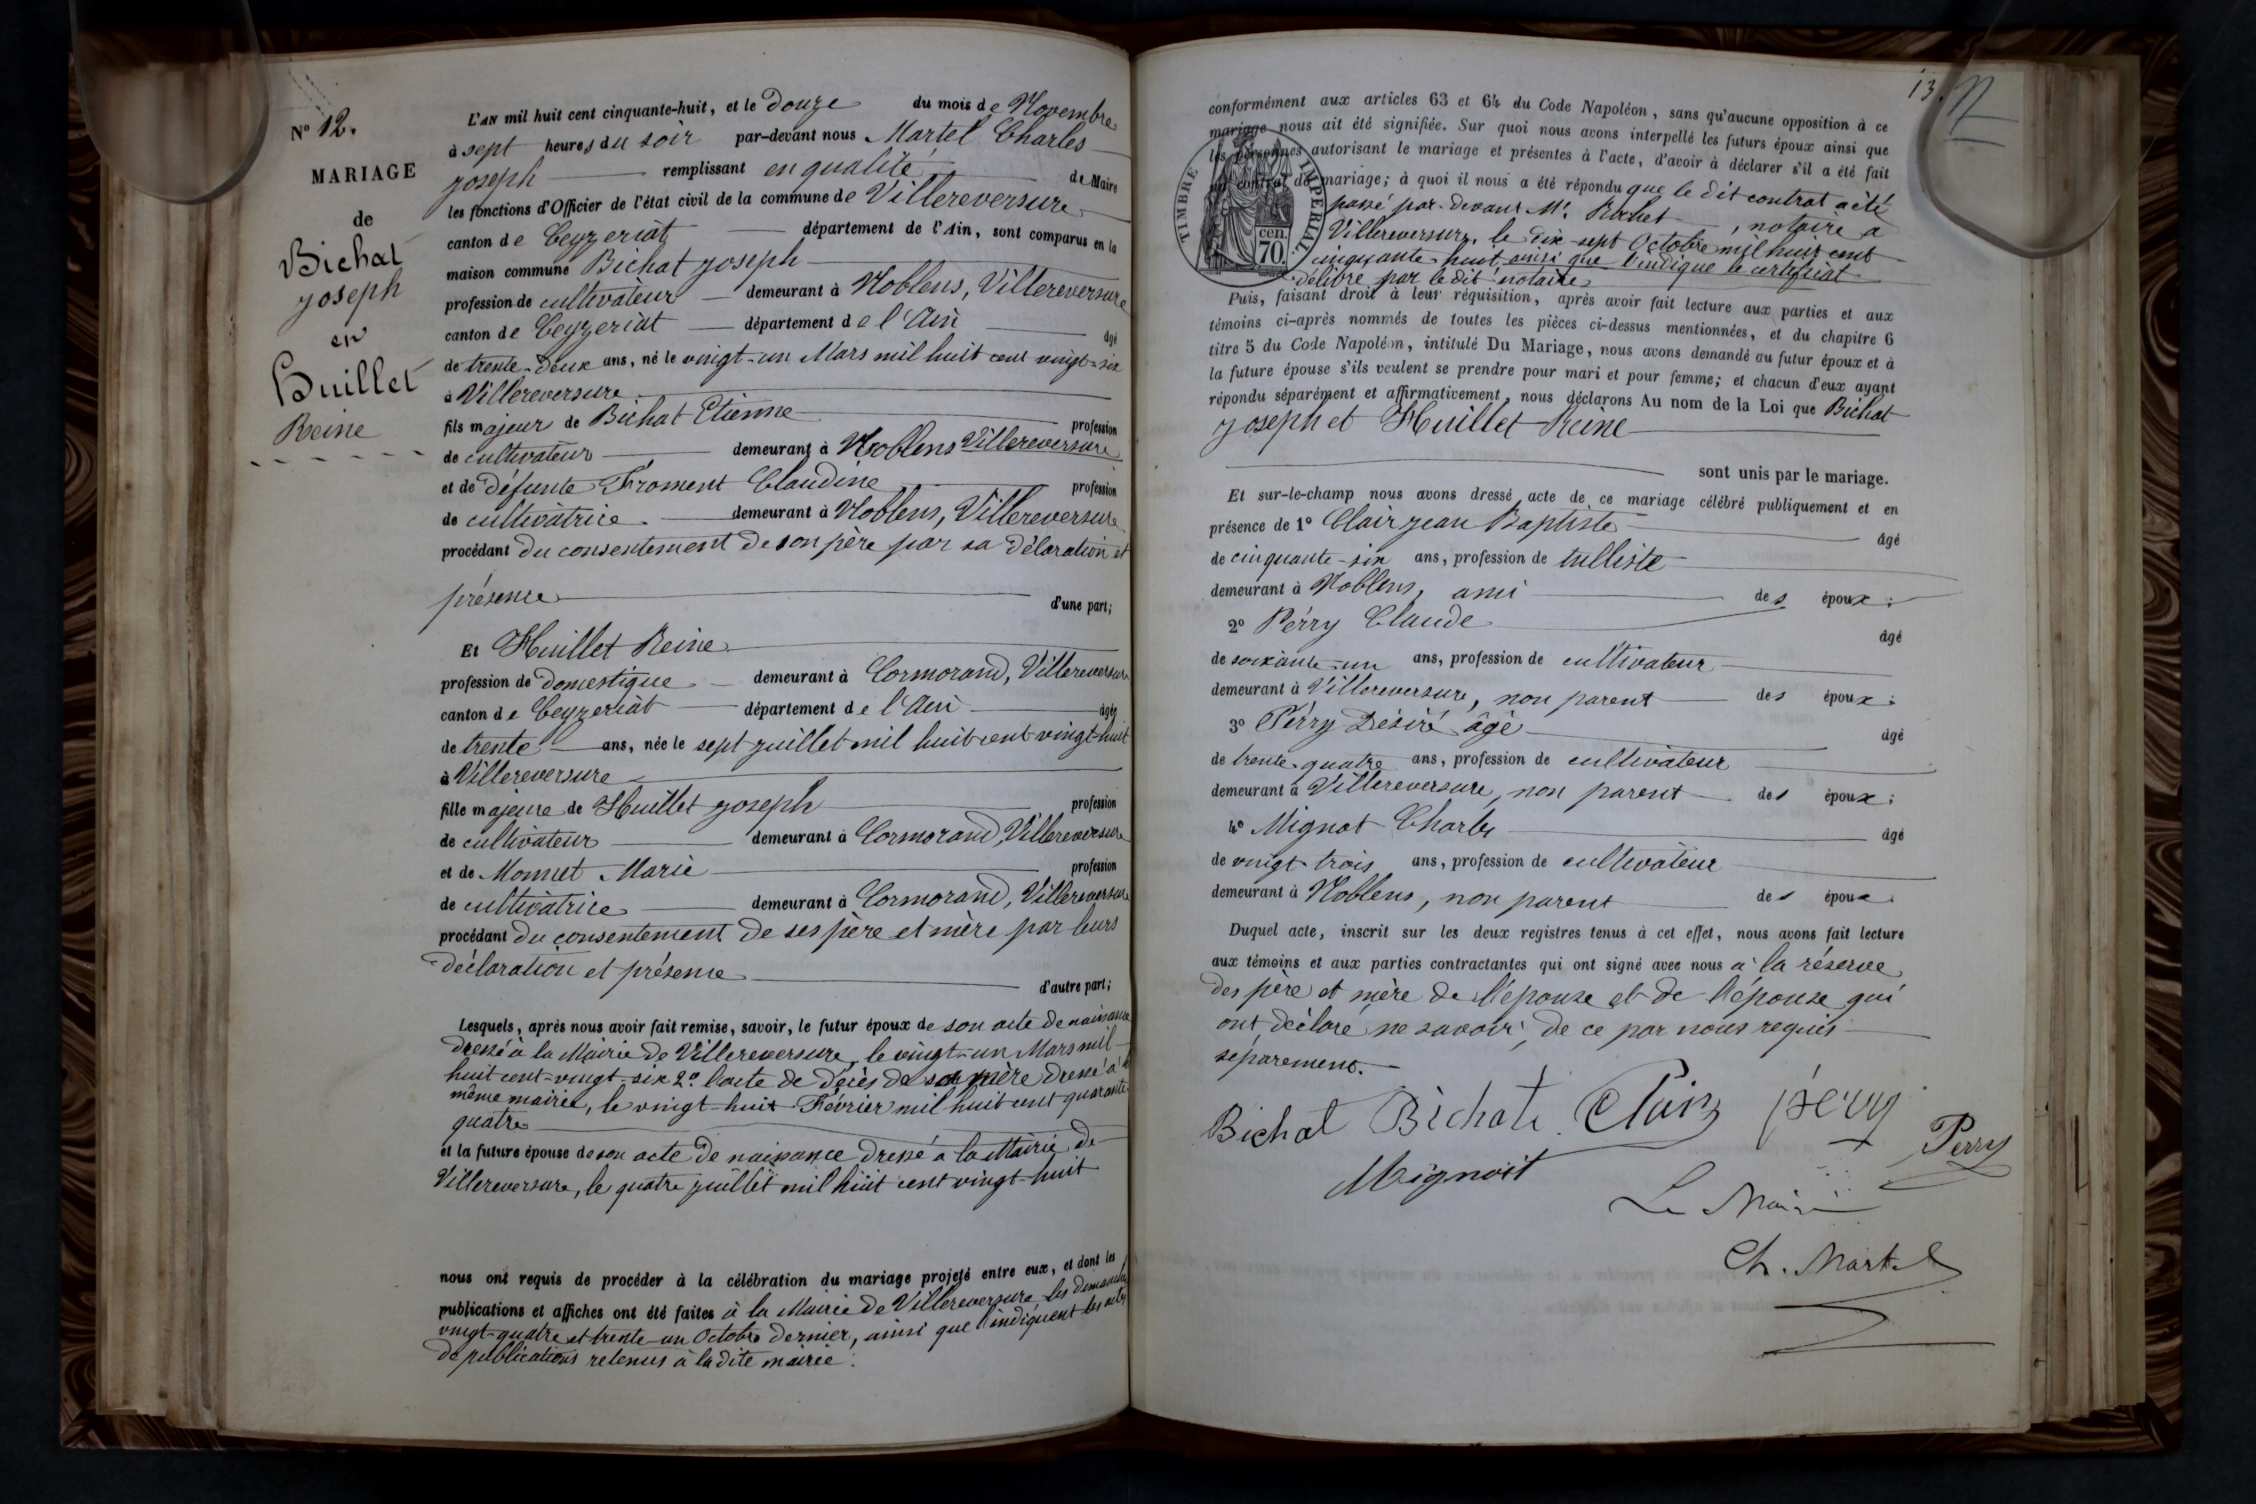 N° 12.
MARIAGE
de
Bichat
joseph
en
Huillet
Reine
L'AN mil huit cent cinquante-huit, et le douze du mois de Novembre
à sept heures du soir par-devant nous Martel Charles
joseph remplissant en qualité de Maire
les fonctions d'Officier de l'état civil de la commune de Villereversure
canton de Ceyzeriat département de l'Ain, sont comparus en la
maison commune Bichat joseph
profession de cultivateur demeurant à Noblens, Villereversure
canton de Ceyzeriat département de l'Ain âgé
de trente-deux ans, né le vingt-un Mars mil huit cent vingt-six
à Villereversure
fils majeur de Bichat Etienne profession
de cultivateur demeurant à Noblens Villereversure
et de défunte Froment Claudine profession
de cultivatrice demeurant à Noblens, Villereversure
procédant du consentement de son père par sa déclaration et
présence d'une part;
Et Huillet Reine
profession de domestique demeurant à Cormorand, Villereversure
canton de Ceyzeriat département de l'Ain âgée
de trente ans, née le sept juillet mil huit cent vingt-huit
à Villereversure
fille majeure de Huillet joseph profession
de cultivateur demeurant à Cormorand, Villereversure
et de Monnet Marie profession
de cultivatrice demeurant à Cormorand, Villereversure
procédant du consentement de ses père et mère par leurs
déclaration et présence d'autre part;
Lesquels, après nous avoir fait remise, savoir, le futur époux de son acte de naissance
dressé à la Mairie de Villereversure, le vingt-un Mars mil
huit cent-vingt-six 2° l'acte de décès de sa mère dressé à la
même mairie, le vingt-huit Février mil huit cent quarante
quatre
et la future épouse de son acte de naissance dressé à la Mairie de
Villereversure, le quatre juillet mil huit cent vingt-huit
nous ont requis de procéder à la célébration du mariage projeté entre eux, et dont les
publications et affiches ont été faites à la Mairie de Villereversure les dimanches
vingt-quatre et trente-un Octobre dernier, ainsi que l'indiquent les actes
de publications retenus à la dite mairie.
13.
conformément aux articles 63 et 64 du Code Napoléon, sans qu'aucune opposition à ce
mariage nous ait été signifiée. Sur quoi nous avons interpellé les futurs époux ainsi que
les personnes autorisant le mariage et présentes à l'acte, d'avoir à déclarer s'il a été fait
un contrat de mariage; à quoi il nous a été répondu que le dit contrat a été
passé par-devant Mr. Rochet, notaire à
Villereversure, le dix-sept Octobre mil huit cent
cinquante-huit, ainsi que l'indique le certificat
délibré par le dit notaire
TIMBRE IMPERIAL
70 cen.
Puis, faisant droit à leur réquisition, après avoir fait lecture aux parties et aux
témoins ci-après nommés de toutes les pièces ci-dessus mentionnées, et du chapitre 6
titre 5 du Code Napoléon, intitulé Du Mariage, nous avons demandé au futur époux et à
la future épouse s'ils veulent se prendre pour mari et pour femme; et chacun d'eux ayant
répondu séparément et affirmativement, nous déclarons Au nom de la Loi que Bichat
joseph et Huillet Reine
sont unis par le mariage.
Et sur-le-champ nous avons dressé acte de ce mariage célébré publiquement et en
présence de 1° Clair jean Baptiste âgé
de cinquante-six ans, profession de tulliste
demeurant à Noblens, ami des époux;
2° Pérry Claude âgé
de soixante-un ans, profession de cultivateur
demeurant à Villereversure, non parent des époux;
3° Pérry Désiré âgé âgé
de trente-quatre ans, profession de cultivateur
demeurant à Villereversure, non parent des époux;
4° Mignot Charles âgé
de vingt-trois ans, profession de cultivateur
demeurant à Noblens, non parent des époux.
Duquel acte, inscrit sur les deux registres tenus à cet effet, nous avons fait lecture
aux témoins et aux parties contractantes qui ont signé avec nous à la réserve
des père et mère de l'épouse et de l'épouse qui
ont déclaré ne savoir, de ce par nous requis
séparement.
Bichat Bichat Clair pérry Perry
Mignoit
Le Maire
Ch. Martel